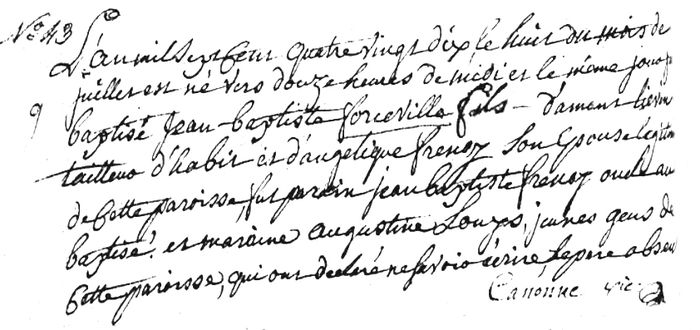 No 43
L'an mil Sept Cent quatre vingt dix, le huit du mois de
juillet est né vers douze heures de midi et le même jour f
baptisé jean-baptiste forceville fils - d'amant
tailleur d'habit et d'angelique frenoy Son Epouse legitim
de Cette paroisse, fut parain jean baptiste frenoy oncle au
baptisé. et maraine augustine Loups, jeunes gens de
Cette paroisse, qui ont declaré ne savoir écrire, le pere absen
Canonne vic.